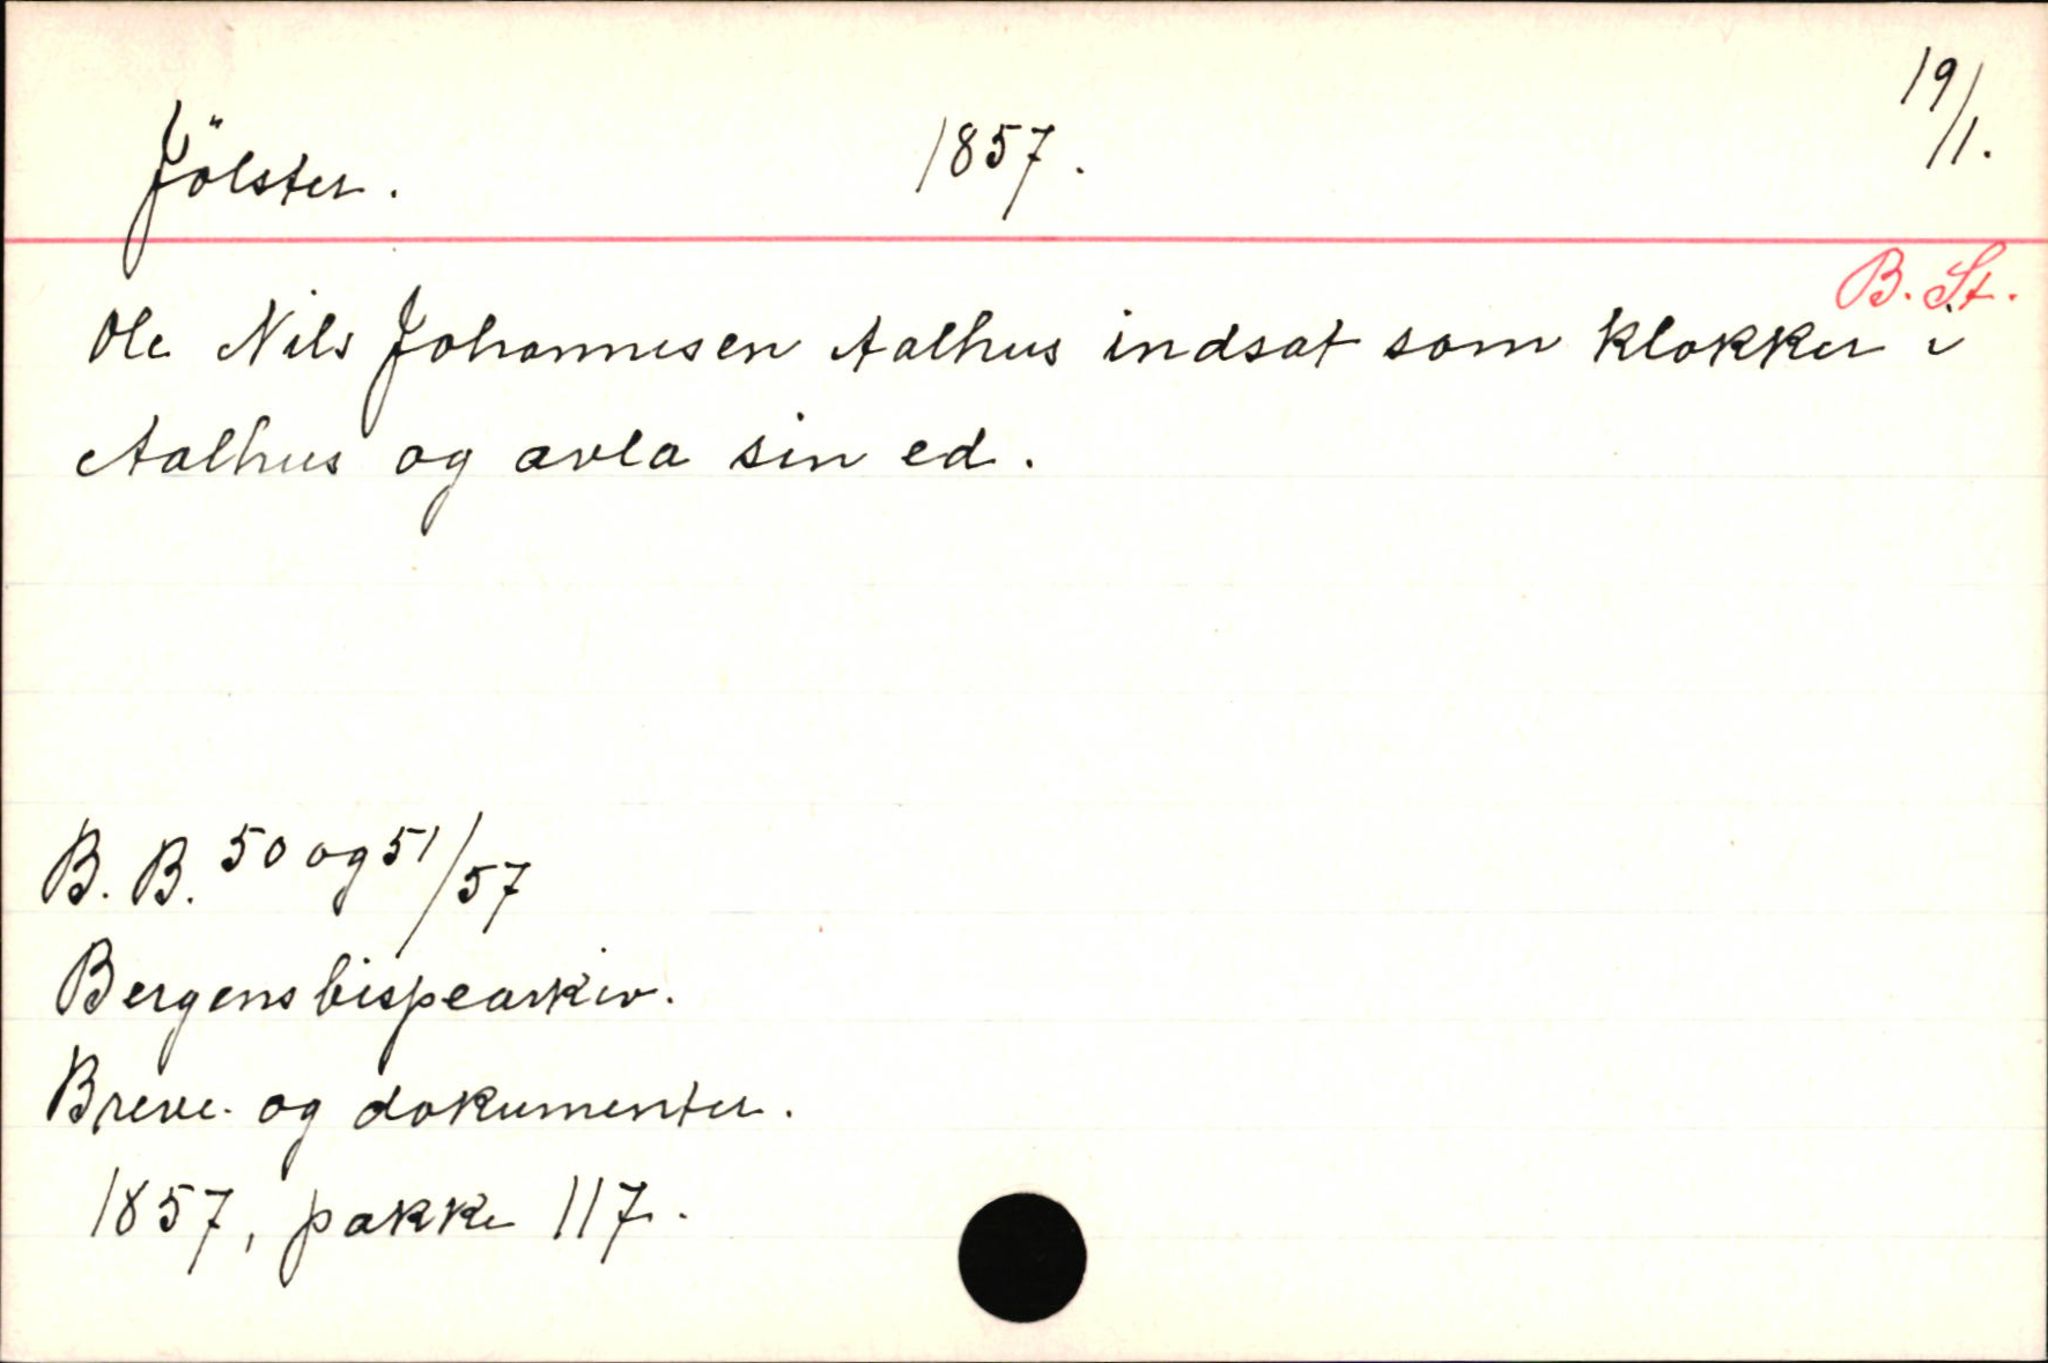 Jölster. 1857. 19/1.
B. St.
Ole Nils Johannesen Aalhus indsat som klokker i
Aalhus og avla sin ed.
B. B. 50 og 51/57
Bergens bispearkiv.
Breve og dokumenter.
1857, pakke 117.